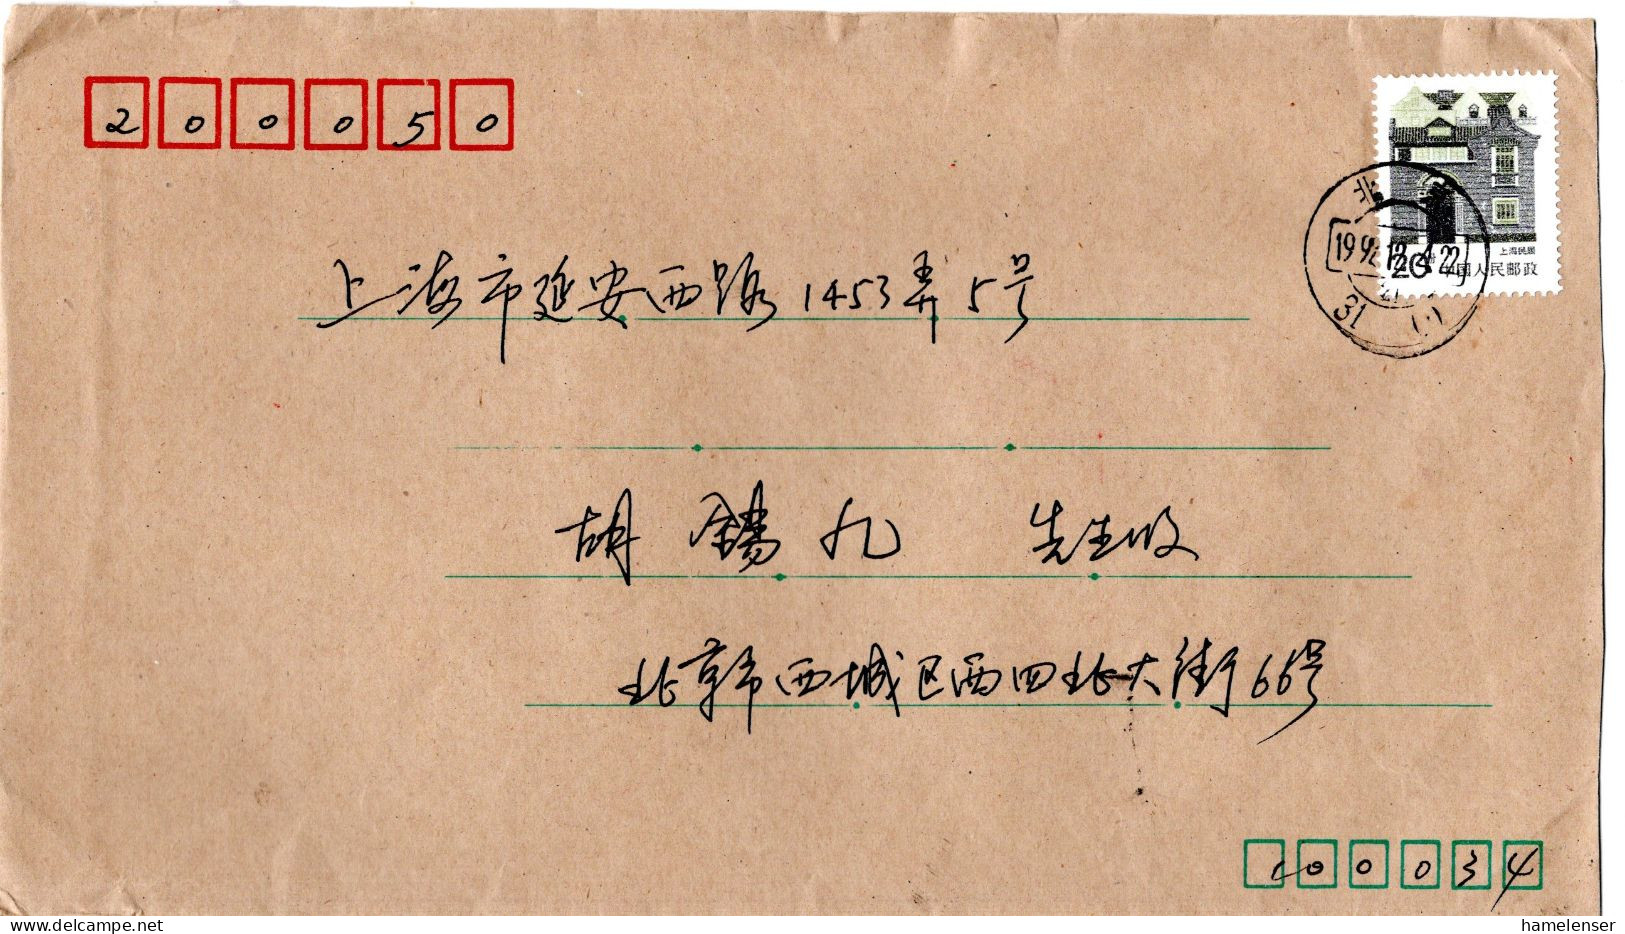 200050
上海民居
20 中国人民邮政
北
1992.12.4.22
31
上海市延安西路1453弄5号
胡锡九 先生收
北京市西城区西四北大街66号
100034
delcampe.net
hamelenser